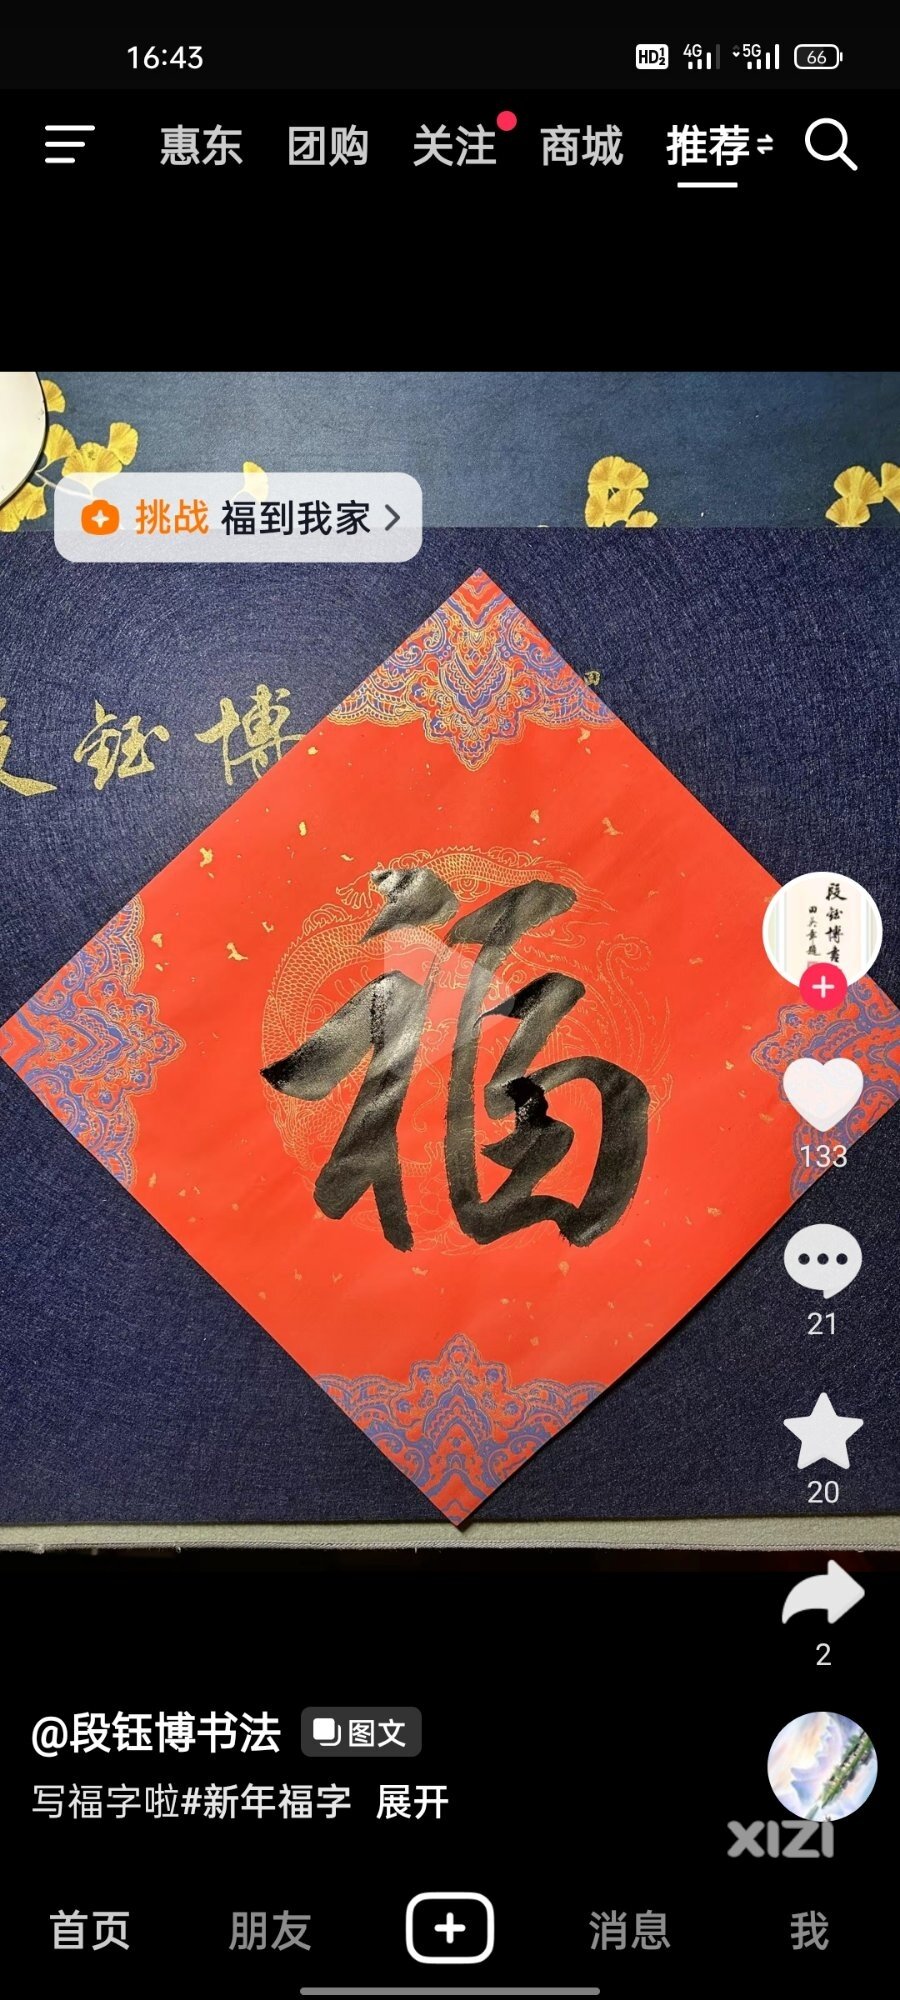 16:43
HD 4G 5G 66
惠东 团购 关注 商城 推荐
挑战 福到我家
钰博
福
段钰博书
田英章题
133
21
20
2
@段钰博书法 图文
写福字啦#新年福字 展开
XIZI
首页 朋友 消息 我